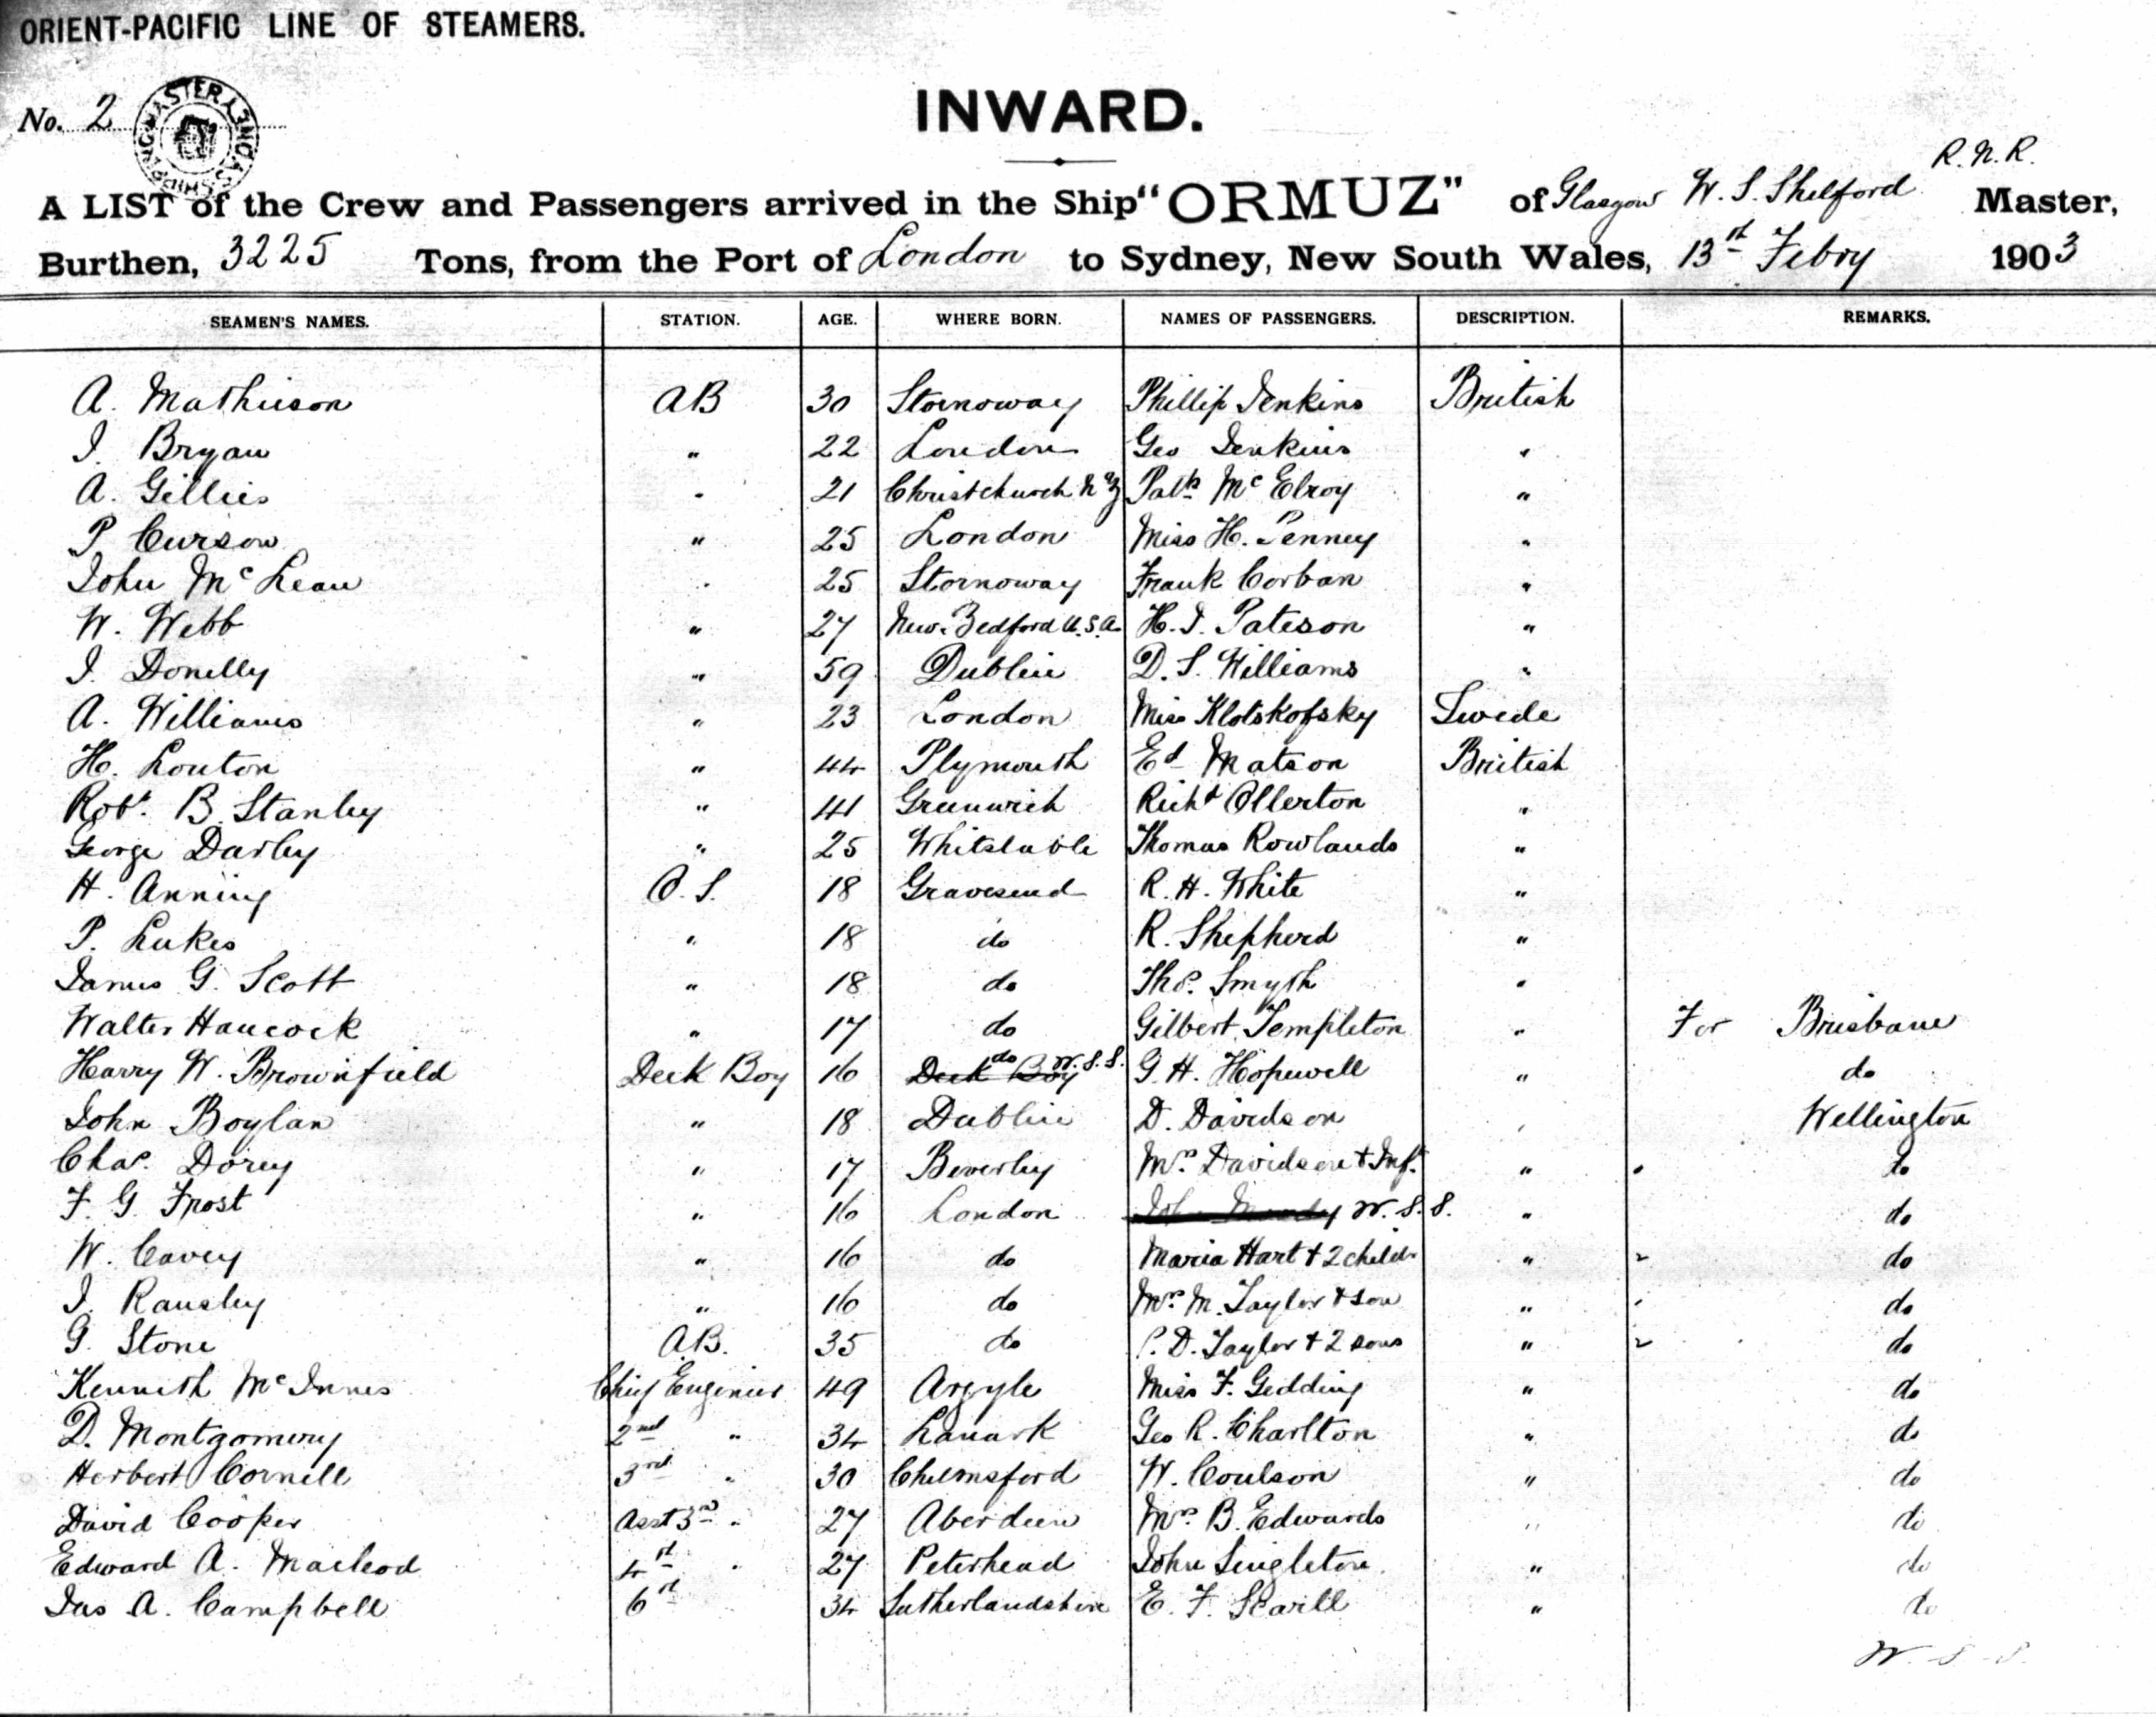 ORIENT-PACIFIC LINE OF STEAMERS.
No. 2
INWARD.
R.N.R.
A LIST of the Crew and Passengers arrived in the Ship "ORMUZ" of Glasgow W. S. Shelford Master,
Burthen, 3225 Tons, from the Port of London to Sydney, New South Wales, 13th Febry 1903
SEAMEN'S NAMES. STATION. AGE. WHERE BORN. NAMES OF PASSENGERS. DESCRIPTION. REMARKS.
A. Mathieson AB 30 Stornoway Phillip Jenkins British
J. Bryan " 22 London Geo Jenkins "
A. Gillies " 21 Christchurch NZ Patk McElroy "
P Curson " 25 London Miss H. Penney "
John McLean " 25 Stornoway Frank Corban "
W. Webb " 27 New Bedford U.S.A. H. J. Pateson "
J. Donelly " 59 Dublin D. S. Williams "
A. Williams " 23 London Miss Klotskofsky Swede
H. Louton " 44 Plymouth Ed Matson British
Robt. B. Stanley " 41 Greenwich Richd Ollerton "
George Darley " 25 Whitstable Thomas Rowlands "
H. Anning O.S. 18 Gravesend R. H. White "
P. Lukes " 18 do R. Shepherd "
James G. Scott " 18 do Thos. Smyth "
Walter Hancock " 17 do Gilbert Templeton " For Brisbane
Harry W. Brownfield Deck Boy 16 Deck Boy do W.S.S. G. H. Hopewell " do
John Boylan " 18 Dublin D. Davidson " Wellington
Chas. Dorey " 17 Beverley Mrs. Davidson + Inft. " do
F. G. Frost " 16 London W.S.S. " do
W. Cavey " 16 do Maria Hart + 2 childn " 2 do
J. Ransley " 16 do Mrs. M. Taylor + son " do
G. Stone A.B. 35 do P. D. Taylor + 2 sons " 2 do
Kenneth McInnes Chief Engineer 49 Argyle Miss F. Gedding " do
D. Montgomery 2nd " 34 Lanark Geo R. Charlton " do
Herbert Cornell 3rd " 30 Chelmsford W. Coulson " do
David Cooper Asst 3rd " 27 Aberdeen Mrs. B. Edwards " do
Edward A. Macleod 4th " 27 Peterhead John Singleton " do
Jas A. Campbell 6th 34 Sutherlandshire E. F. Scarill " do
W.S.S.